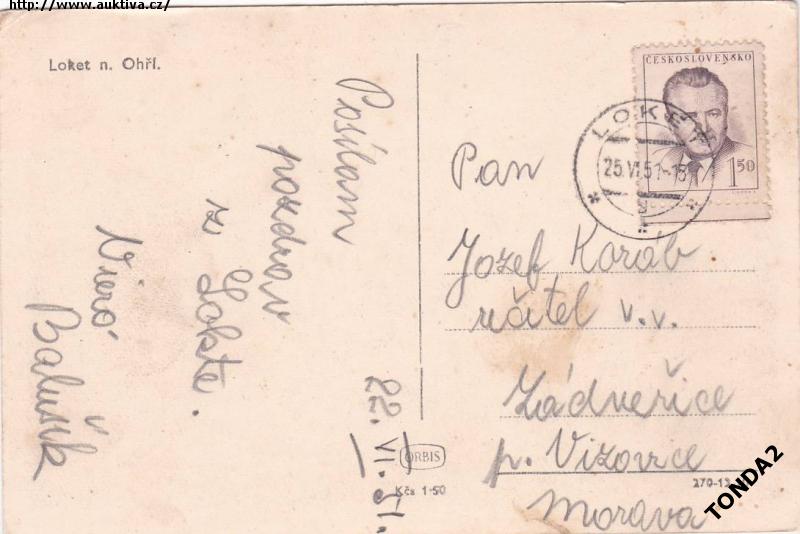 http://www.auktiva.cz/
Loket n. Ohří.
Posílam
pozdrav
z Lokte.
Balušík
22. VI. 51.
ČESKOSLOVENSKO
1 50
LOKET
25.VI.51-18
Pan
Jozef Koráb
učitel v. v.
Zádveřice
p. Vizovice
Morava
ORBIS
Kčs 1·50
270-12
TONDA2